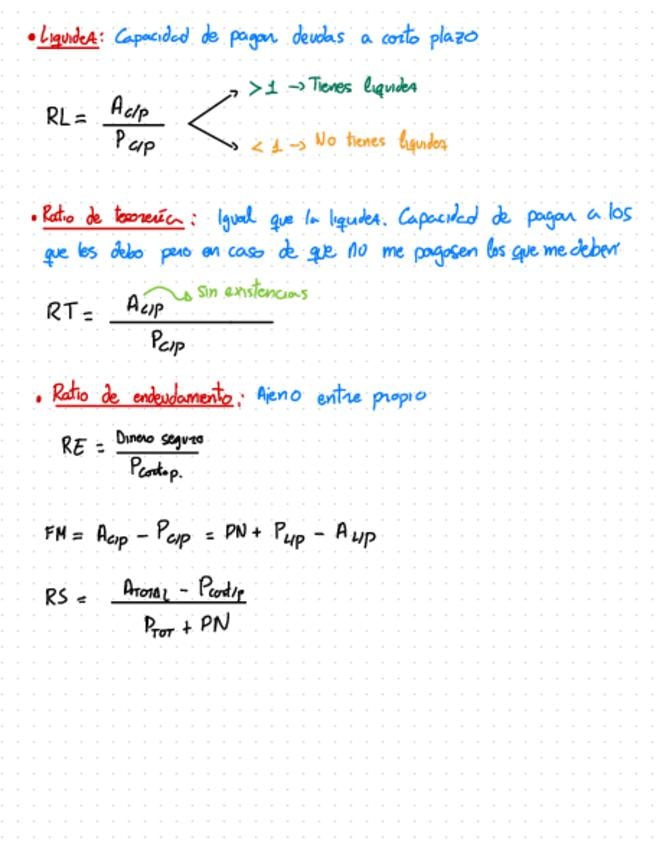 • Liquidez: Capacidad de pagar deudas a corto plazo
RL = A c/p / P c/p
> 1 → Tienes liquidez
< 1 → No tienes liquidez
• Ratio de tesorería: Igual que la liquidez. Capacidad de pagar a los
que les debo pero en caso de que no me pagasen los que me deben
RT = A c/p / P c/p
Sin existencias
• Ratio de endeudamento: Ajeno entre propio
RE = Dinero seguro / P corto p.
FM = A c/p - P c/p = PN + P L/p - A L/p
RS = A TOTAL - P cort/p / P TOT + PN